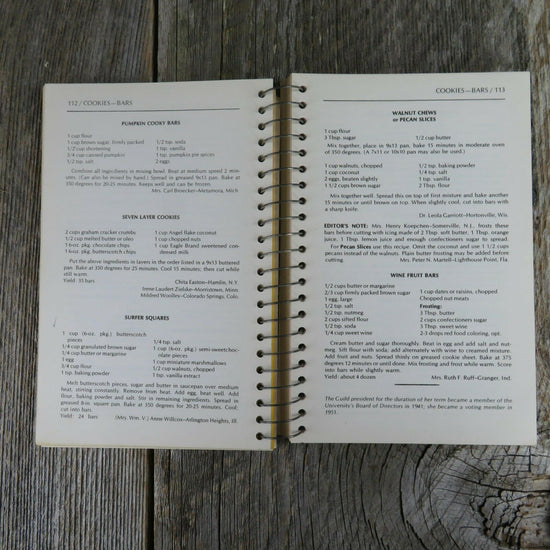 112 / COOKIES—BARS
PUMPKIN COOKY BARS
1 cup flour
1 cup brown sugar, firmly packed
1/2 cup shortening
3/4 cup canned pumpkin
1/2 tsp. salt
1/2 tsp. soda
1 tsp. vanilla
1 tsp. pumpkin pie spices
2 eggs
Combine all ingredients in mixing bowl. Beat at medium speed 2 min-
utes. (Can also be mixed by hand.) Spread in greased 9x13 pan. Bake at
350 degrees for 20-25 minutes. Keeps well and can be frozen.
Mrs. Carl Bonecker–Metamora, Mich.
SEVEN LAYER COOKIES
2 cups graham cracker crumbs
1/2 cup melted butter or oleo
1 6-oz. pkg. chocolate chips
1 6-oz. pkg. butterscotch chips
1 cup Angel flake coconut
1 cup chopped nuts
1 cup Eagle Brand sweetened con-
densed milk
Put the above ingredients in layers in the order listed in a 9x13 buttered
pan. Bake at 350 degrees for 25 minutes. Cool 15 minutes; then cut while
still warm.
Yield: 35 bars
Chita Easton–Hamlin, N.Y.
Irene Laudert Zielske–Morristown, Minn.
Mildred Woolley–Colorado Springs, Colo.
SURFER SQUARES
1 cup (6-oz. pkg.) butterscotch
pieces
1/4 cup granulated brown sugar
1/4 cup butter or margarine
1 egg
3/4 cup flour
1 tsp. baking powder
1/4 tsp. salt
1 cup (6-oz. pkg.) semi-sweet choc-
olate pieces
1 cup miniature marshmallows
1/2 cup walnuts, chopped
1 tsp. vanilla extract
Melt butterscotch pieces, sugar and butter in saucepan over medium
heat, stirring constantly. Remove from heat. Add egg, beat well. Add
flour, baking powder and salt. Stir in remaining ingredients. Spread in
greased 8-in. square pan. Bake at 350 degrees for 20-25 minutes. Cool;
cut into bars.
Yield: 24 bars
(Mrs. Wm. V.) Anne Willcox–Arlington Heights, Ill.
COOKIES—BARS / 113
WALNUT CHEWS
or PECAN SLICES
1 cup flour
3 Tbsp. sugar
1/2 cup butter
Mix together well, place in 9x13 pan, bake 15 minutes in moderate oven
of 350 degrees. (A 7x11 or 10x10 pan may also be used.)
1 cup walnuts, chopped
1 cup coconut
2 eggs, beaten slightly
1 1/2 cups brown sugar
1/2 tsp. baking powder
1/4 tsp. salt
1 tsp. vanilla
2 Tbsp. flour
Mix together well. Spread this on top of first mixture and bake another
15 minutes or until brown on top. When slightly cool, cut into bars with
a sharp knife.
Dr. Leola Garriott–Hortonville, Wis.
EDITOR'S NOTE: Mrs. Henry Koepchen–Somerville, N.J., frosts these
bars before cutting with icing made of 2 Tbsp. soft butter, 1 Tbsp. orange
juice, 1 Tbsp. lemon juice and enough confectioners sugar to spread.
For Pecan Slices use this recipe. Omit the coconut and use 1 1/2 cups
pecans instead of the walnuts. Plain butter frosting may be added before
cutting.
Mrs. Peter N. Martell–Lighthouse Point, Fla.
WINE FRUIT BARS
1/2 cup butter or margarine
2/3 cup firmly packed brown sugar
1 egg, large
1/2 tsp. salt
1/2 tsp. nutmeg
2 cups sifted flour
1/2 tsp. soda
1/4 cup sweet wine
1 cup dates or raisins, chopped
Chopped nut meats
Frosting:
3 Tbsp. butter
2 cups confectioners sugar
3 Tbsp. sweet wine
2-3 drops red food coloring, opt.
Cream butter and sugar thoroughly. Beat in egg and add salt and nut-
meg. Sift flour with soda; add alternately with wine to creamed mixture.
Add fruit and nuts. Spread thinly on greased cookie sheet. Bake at 375
degrees 12 minutes or until done. Mix frosting and frost while warm. Score
into bars while slightly warm.
Yield: about 4 dozen
Mrs. Roth F. Ruff–Granger, Ind.
The Guild president for the duration of her term became a member of the
University's Board of Directors in 1941; she became a voting member in
1951.